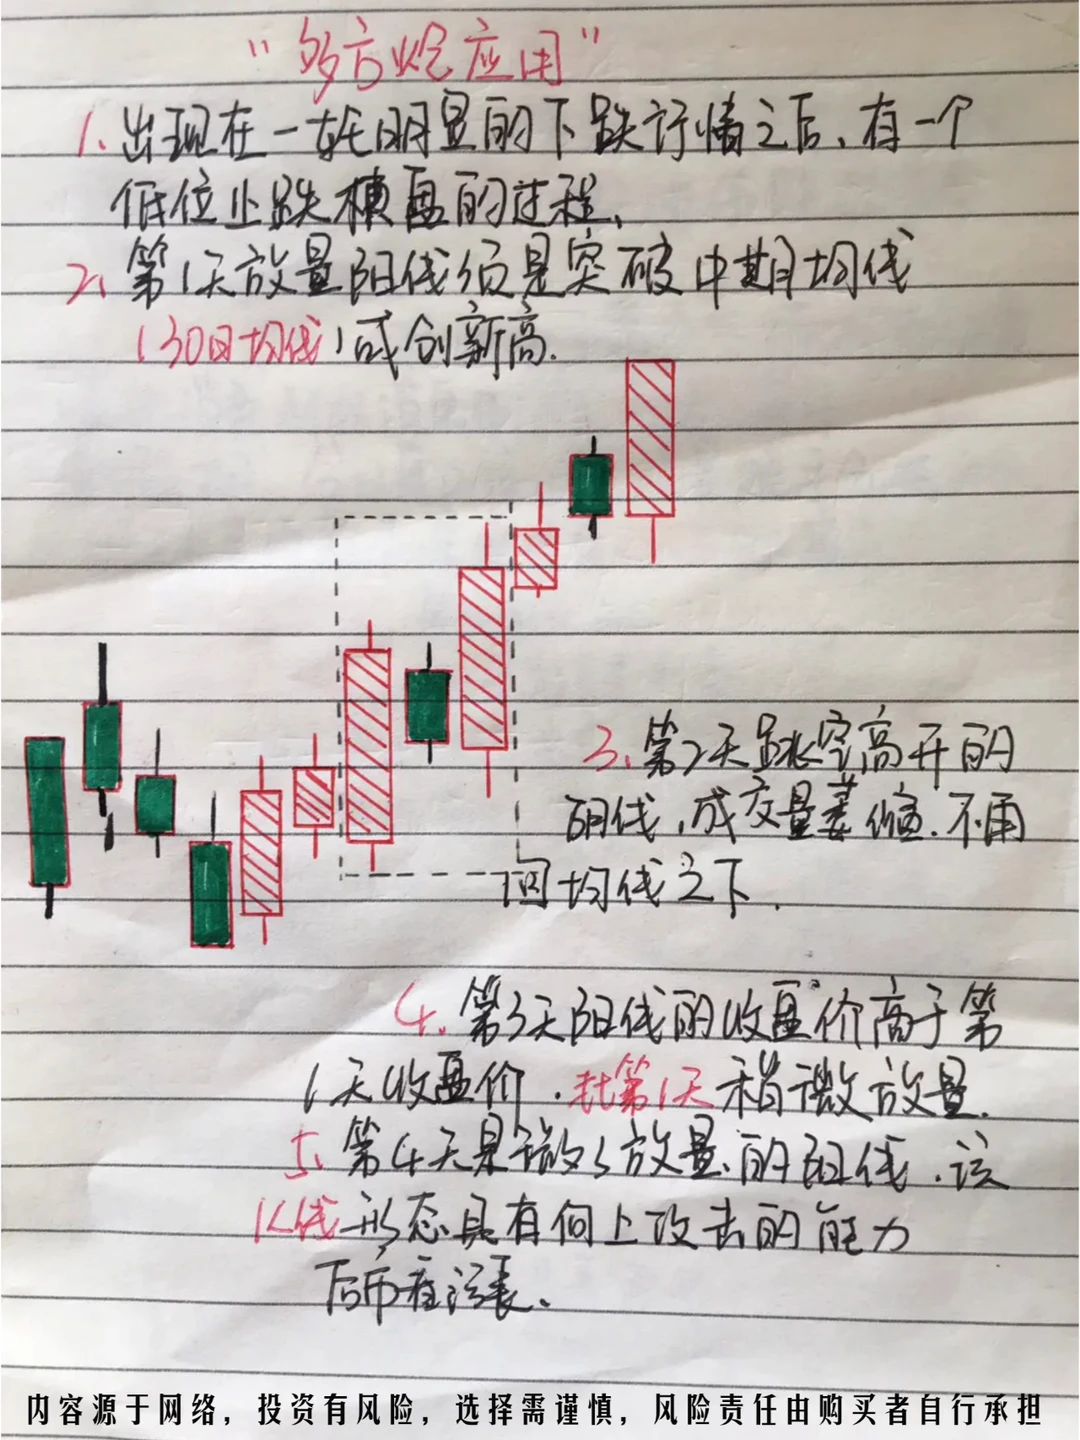 “多方炮应用”
1、出现在一轮明显的下跌行情之后、有一个
低位止跌横盘的过程、
2、第1天放量阳线须是突破中期均线
(30日均线)或创新高.
3、第2天跳空高开的
阴线,成交量萎缩.不再
回均线之下.
4、第3天阳线的收盘价高于第
1天收盘价.比第1天稍微放量.
5、第4天是缩小放量、的阳线.该
K线形态具有向上攻击的能力
后市看涨、
内容源于网络，投资有风险，选择需谨慎，风险责任由购买者自行承担